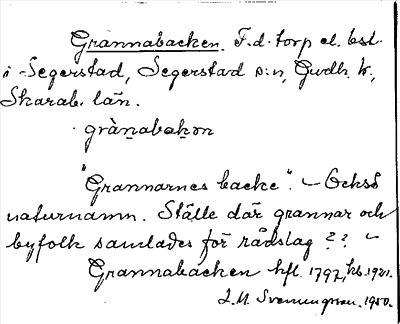 Grannabacken. F.d. torp el. bst.
i Segerstad, Segerstad s:n, Gudh. h.,
Skarab. län.
gràn̲abak̲ən
"Grannarnes backe". – Också
naturnamn. Ställe där grannar och
byfolk samlades för rådslag ?? –
Grannabacken hfl. 1797, kb. 1921.
L.M. Svenungsson. 1950.